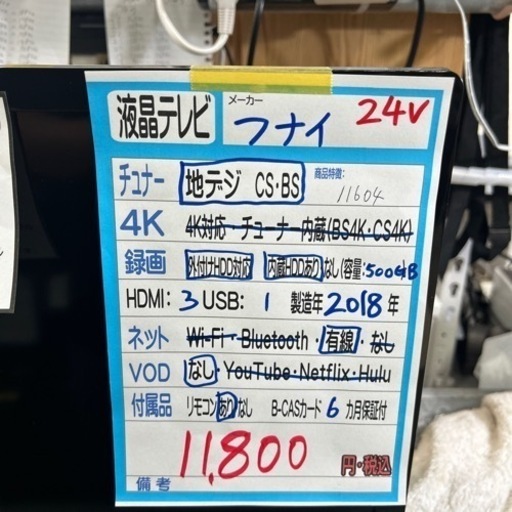 液晶テレビ メーカー フナイ 24V
チュナー 地デジ CS・BS 商品特徴: 11604
4K 4K対応・チューナー内蔵(BS4K・CS4K)
録画 外付けHDD対応 内蔵HDDあり なし(容量:500GB
HDMI: 3 USB: 1 製造年 2018年
ネット Wi-Fi・Bluetooth・有線・なし
VOD なし・YouTube・Netflix・Hulu
付属品 リモコン あり なし B-CASカード 6カ月保証付
11,800 円・税込
備考